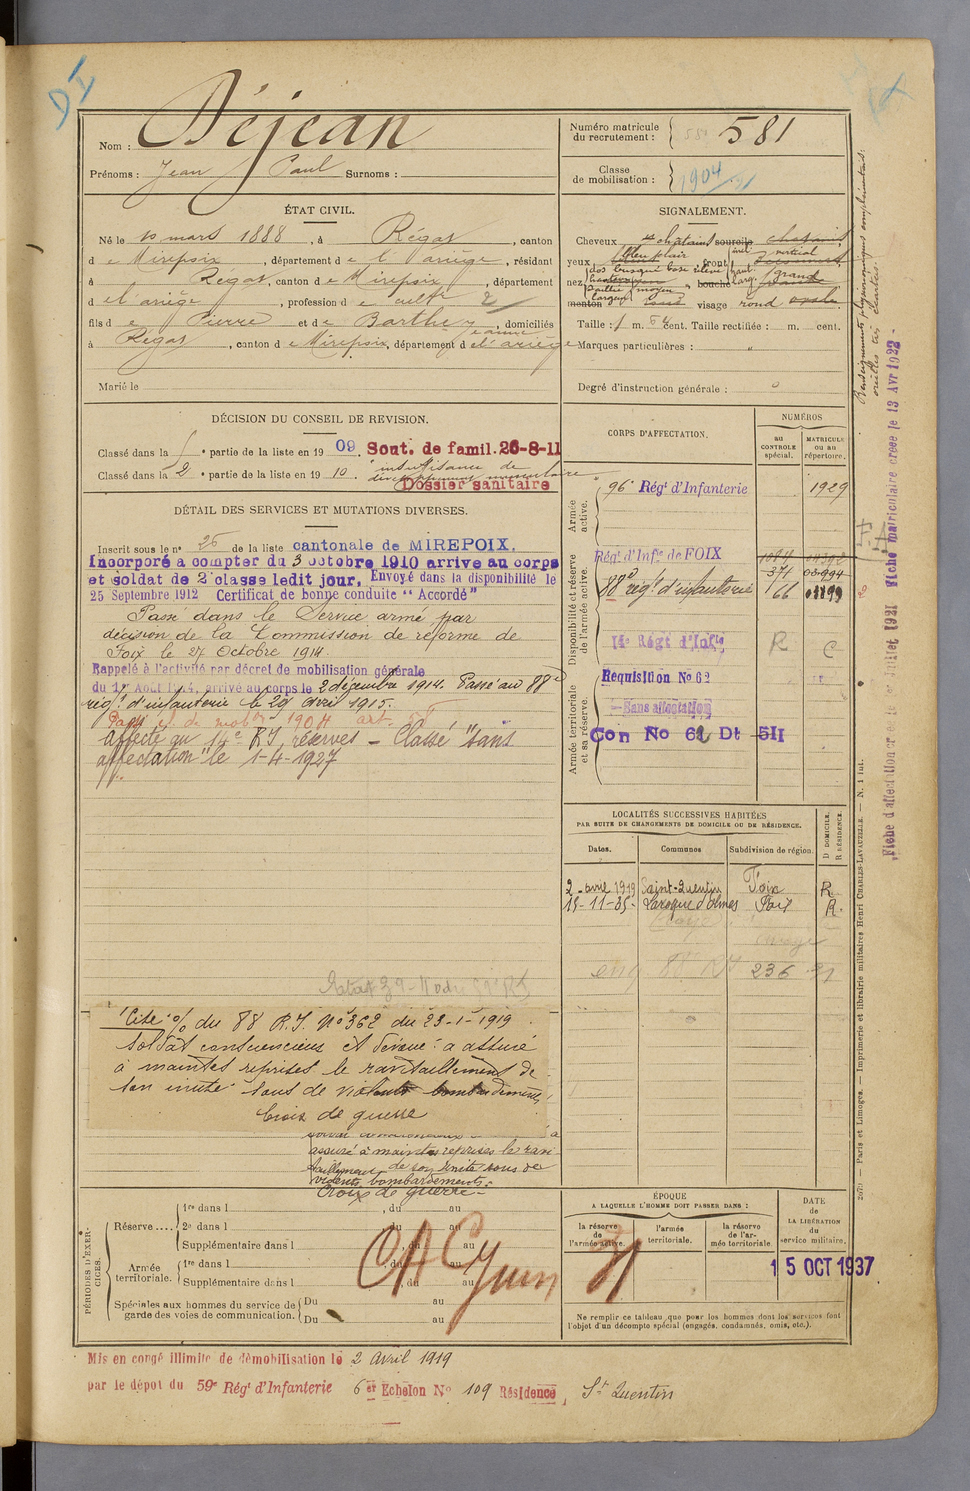 D I
Nom : Déjean
Prénoms : Jean Paul Surnoms :
Numéro matricule
du recrutement : 581
Classe
de mobilisation : 1904
ÉTAT CIVIL.
Né le 10 mars 1888, à Régat, canton
de Mirepoix, département de l'ariège, résidant
à Régat, canton de Mirepoix, département
de l'ariège, profession de cultr 2
fils de Pierre et de Barthe Jeanne, domiciliés
à Régat, canton de Mirepoix, département de l'ariège
Marié le
SIGNALEMENT.
Cheveux chatains sourcils chatains
yeux bleu clair, front incl vertical
nez dos busqué base relevé haut. grand
saillie moyen bouche larg.
largeur
menton visage rond ovale
Taille : 1 m. 64 cent. Taille rectifiée : m. cent.
Marques particulières : "
Degré d'instruction générale : 0
Renseignements physionomiques complémentaires:
oreilles très écartées.
DÉCISION DU CONSEIL DE REVISION.
Classé dans la 1 e partie de la liste en 1909. Sout. de famil. 26-8-11
Classé dans la 2 e partie de la liste en 1910. insuffisance de
développement musculaire
Dossier sanitaire
DÉTAIL DES SERVICES ET MUTATIONS DIVERSES.
Inscrit sous le n° 26 de la liste cantonale de MIREPOIX.
Incorporé a compter du 3 octobre 1910 arrive au corps
et soldat de 2e classe ledit jour. Envoyé dans la disponibilité le
25 Septembre 1912 Certificat de bonne conduite "Accordé"
Passé dans le Service armé par
décision de la Commission de réforme de
Foix le 27 Octobre 1914.
Rappelé à l'activité par décret de mobilisation générale
du 1er Août 1914, arrivé au corps le 2 décembre 1914. Passé au 88e
régt d'infanterie le 29 avril 1915.
Passé cl. de mobon 1904 art.
Affecté au 14e R.I. réserves - Classé "sans
affectation" le 1-4-1927
CORPS D'AFFECTATION.
NUMÉROS
au
CONTROLE
spécial.
MATRICULE
ou au
répertoire.
Armée
active.
96e Régt d'Infanterie 1929
Disponibilité et réserve
de l'armée active.
Régt d'Infie de FOIX 1084
371 08994
88e régt d'infanterie 166 01199
14e Régt d'Infie R C
Armée territoriale
et sa réserve.
Réquisition No 62
- Sans affectation
Con No 62 Dt 511
Fiche d'affectation créée le 1er Juillet 1921 Fiche matriculaire créée le 13 Avr 1922 -
LOCALITÉS SUCCESSIVES HABITÉES
PAR SUITE DE CHANGEMENTS DE DOMICILE OU DE RÉSIDENCE.
Dates. Communes Subdivision de région. D DOMICILE. R RÉSIDENCE.
2 avril 1919 Saint-Quentin Foix R
15-11-35 Laroque d'Olmes Foix R.
236
"Cité o/ du 88 R.I. No 362 du 23-1-1919
soldat consciencieux et dévoué: a assuré
à maintes reprises le ravitaillement de
son unité sous de violents bombardements,
Croix de guerre
assuré à maintes reprises le ravi
taillement de son unité sous de
violents bombardements.
Croix de guerre -
PÉRIODES D'EXER-
CICES.
Réserve....
1re dans l , du au
2e dans l , du au
Supplémentaire dans l , du au
Armée
territoriale.
1re dans l , du au
Supplémentaire dans l , du au
Spéciales aux hommes du service de
garde des voies de communication.
Du au
Du au
CAC Juin 31
ÉPOQUE
A LAQUELLE L'HOMME DOIT PASSER DANS :
la réserve
de
l'armée active.
l'armée
territoriale.
la réserve
de l'ar-
mée territoriale.
DATE
de
LA LIBÉRATION
du
service militaire.
15 OCT 1937
Ne remplir ce tableau que pour les hommes dont les services font
l'objet d'un décompte spécial (engagés, condamnés, omis, etc.).
Paris et Limoges. — Imprimerie et librairie militaires Henri CHARLES-LAVAUZELLE. — N. 1 int.
Mis en congé illimité de démobilisation le 2 Avril 1919
par le dépot du 59e Régt d'Infanterie 6er Echelon No 109 Résidence, St Quentin